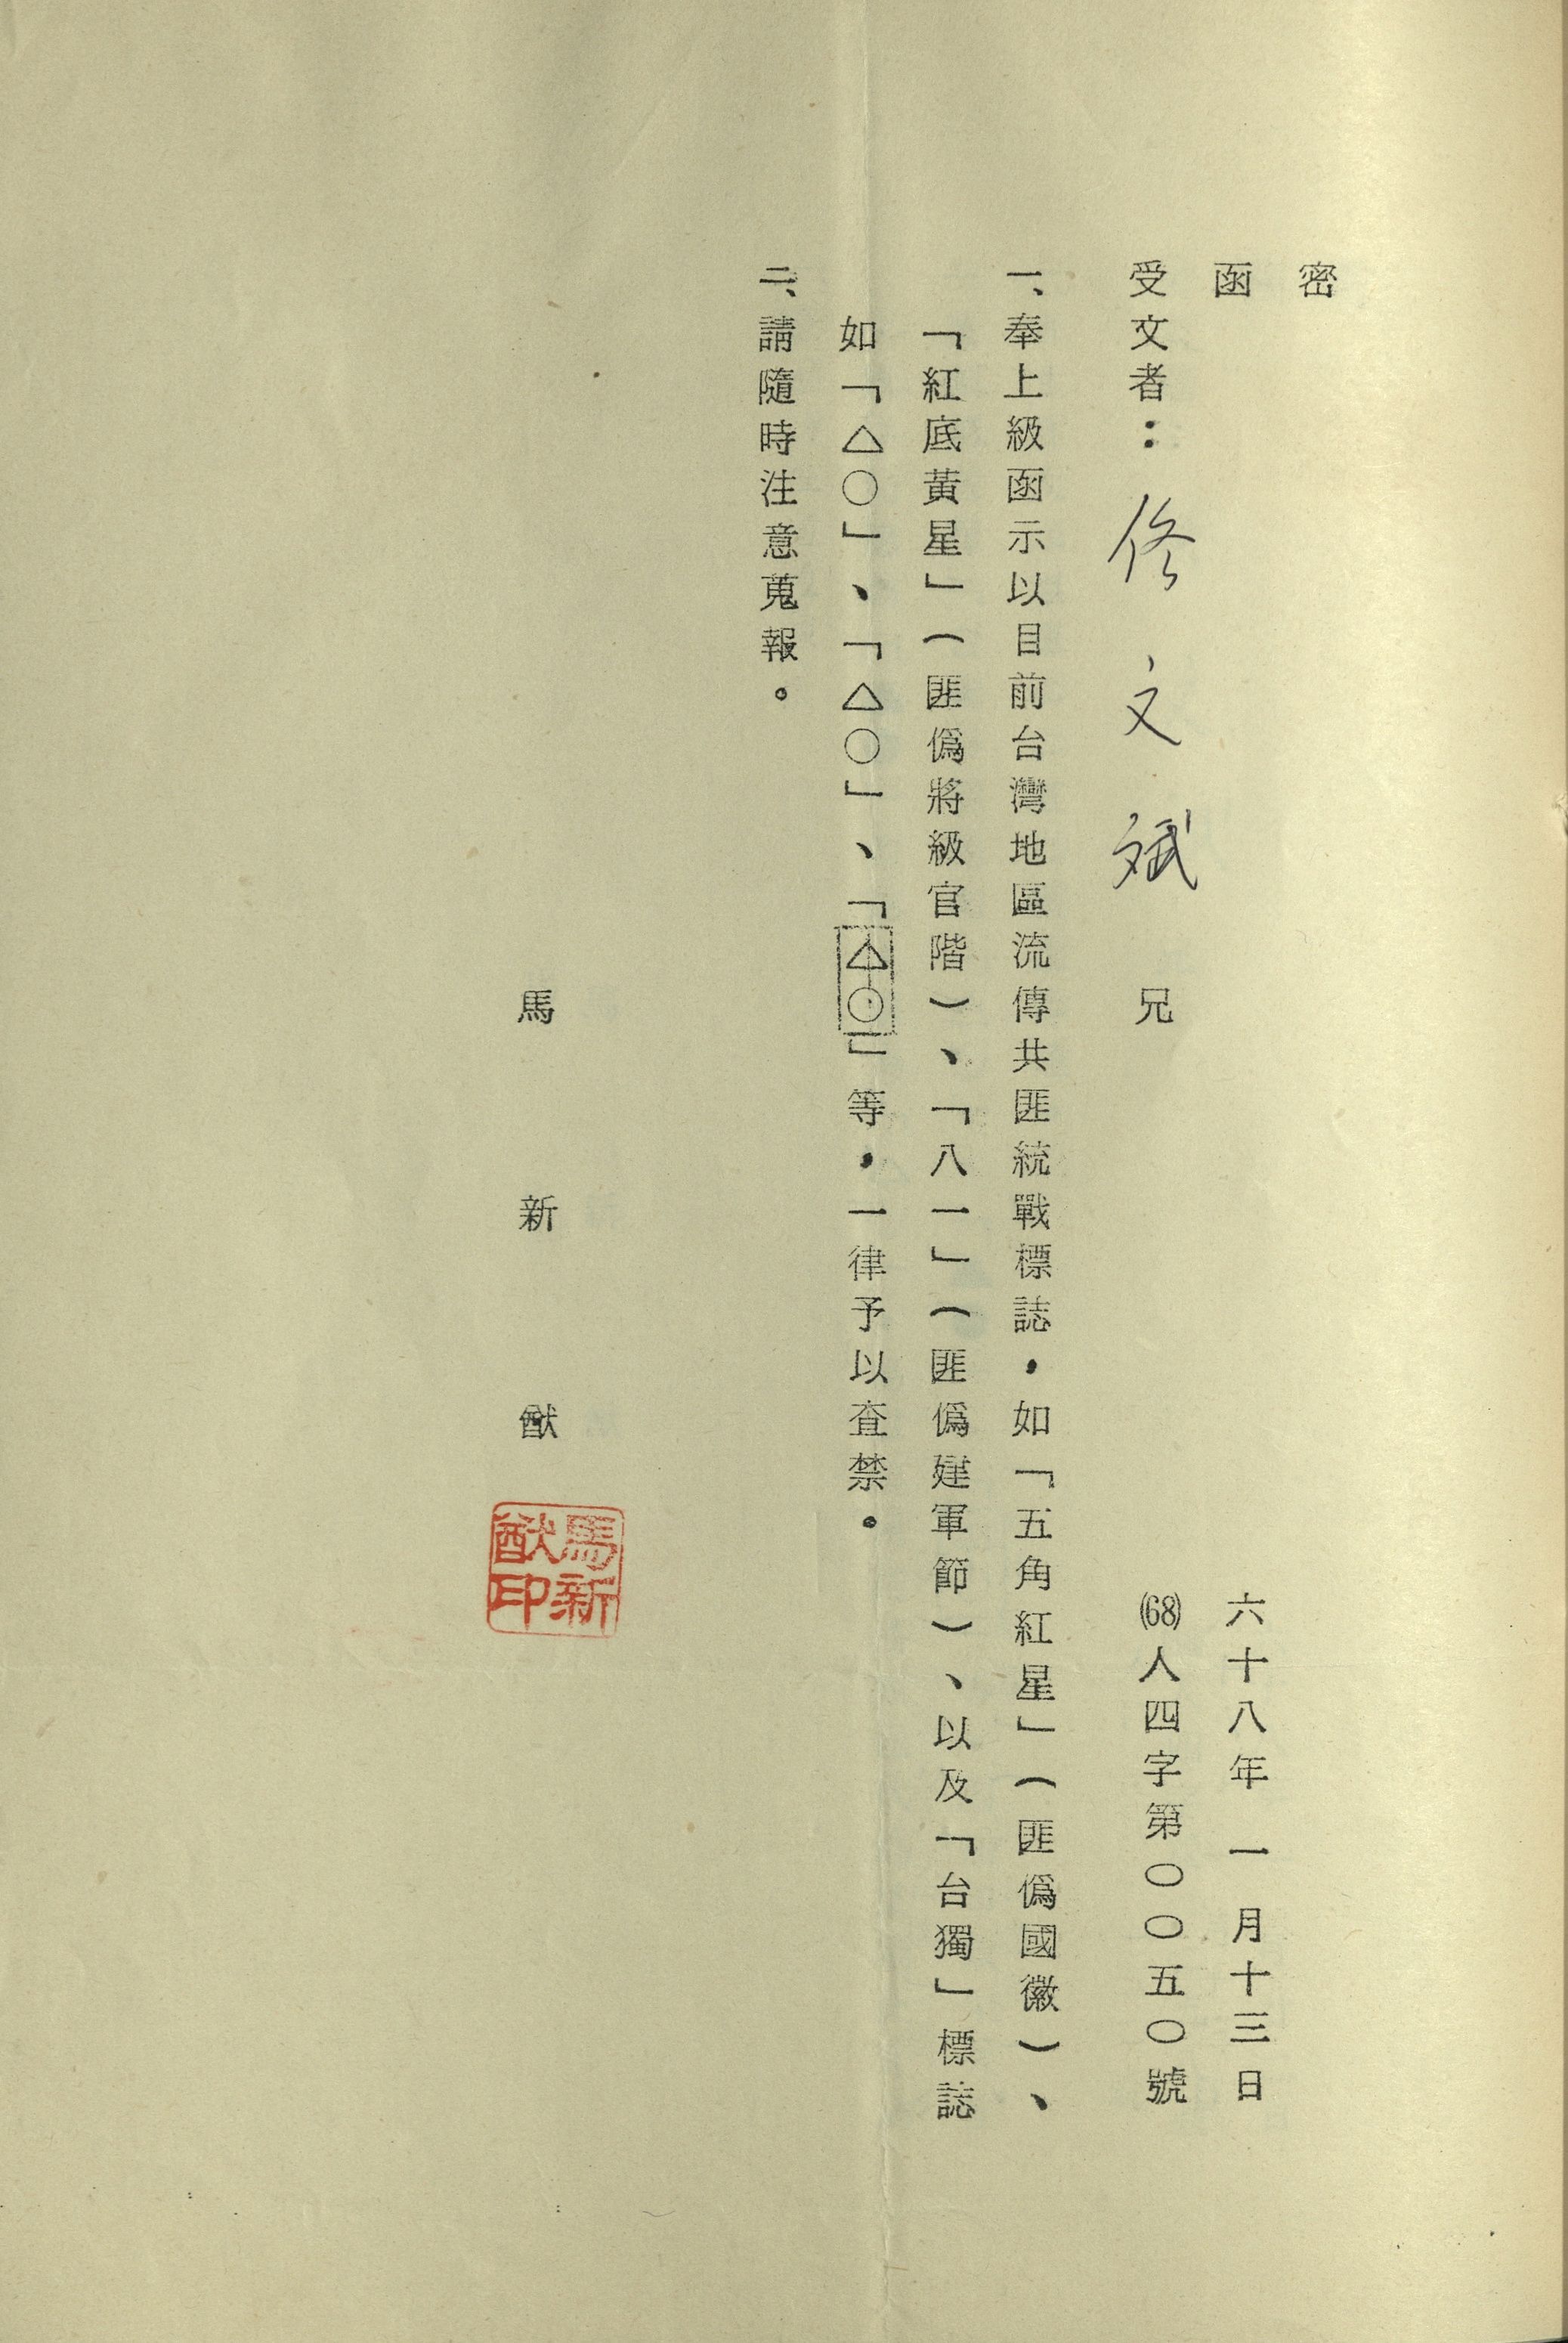 密
函
六十八年一月十三日
受文者：修文斌兄
(68)人四字第〇〇五〇號
一、奉上級函示以目前台灣地區流傳共匪統戰標誌，如「五角紅星」（匪僞國徽）、
「紅底黃星」（匪僞將級官階）、「八一」（匪僞建軍節）、以及「台獨」標誌
如「△○」、「△○」、「△○」等，一律予以查禁。
二、請隨時注意蒐報。
馬新猷
馬新
猷印